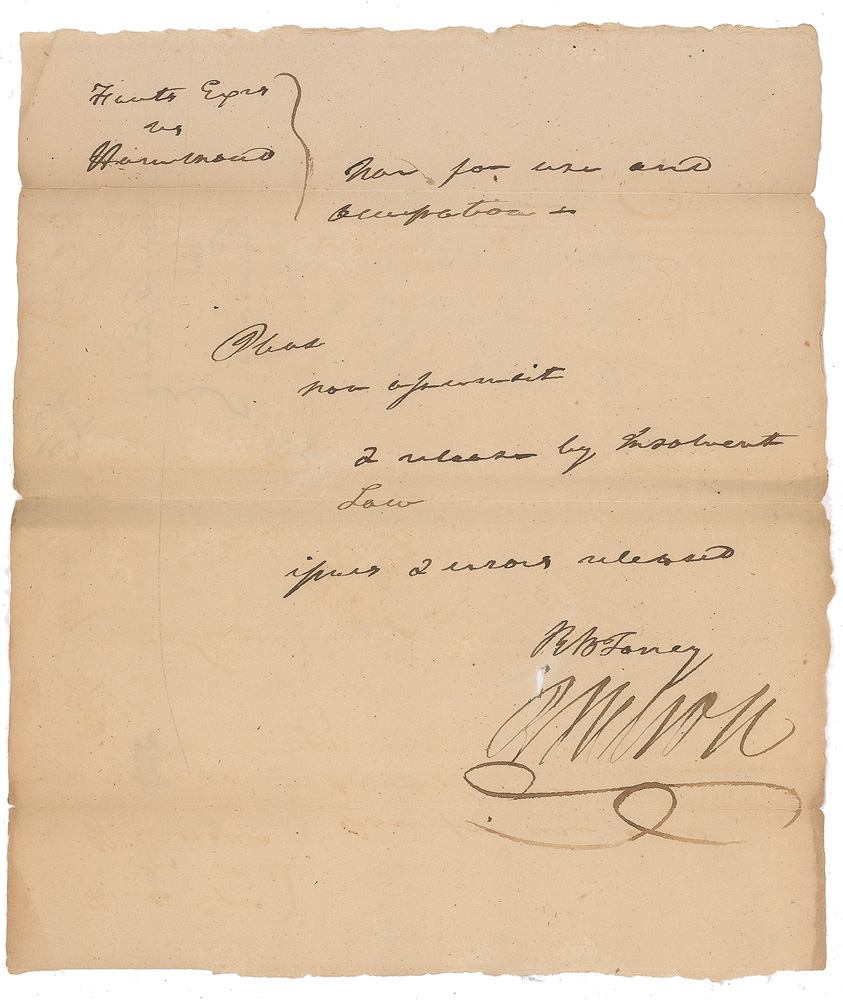 Fouts Exrs
vs
Hammond
Nar for use and
occupation &
Pleas
non assumsit
2 release by Insolvent
Law
issues & errors released
R B Taney